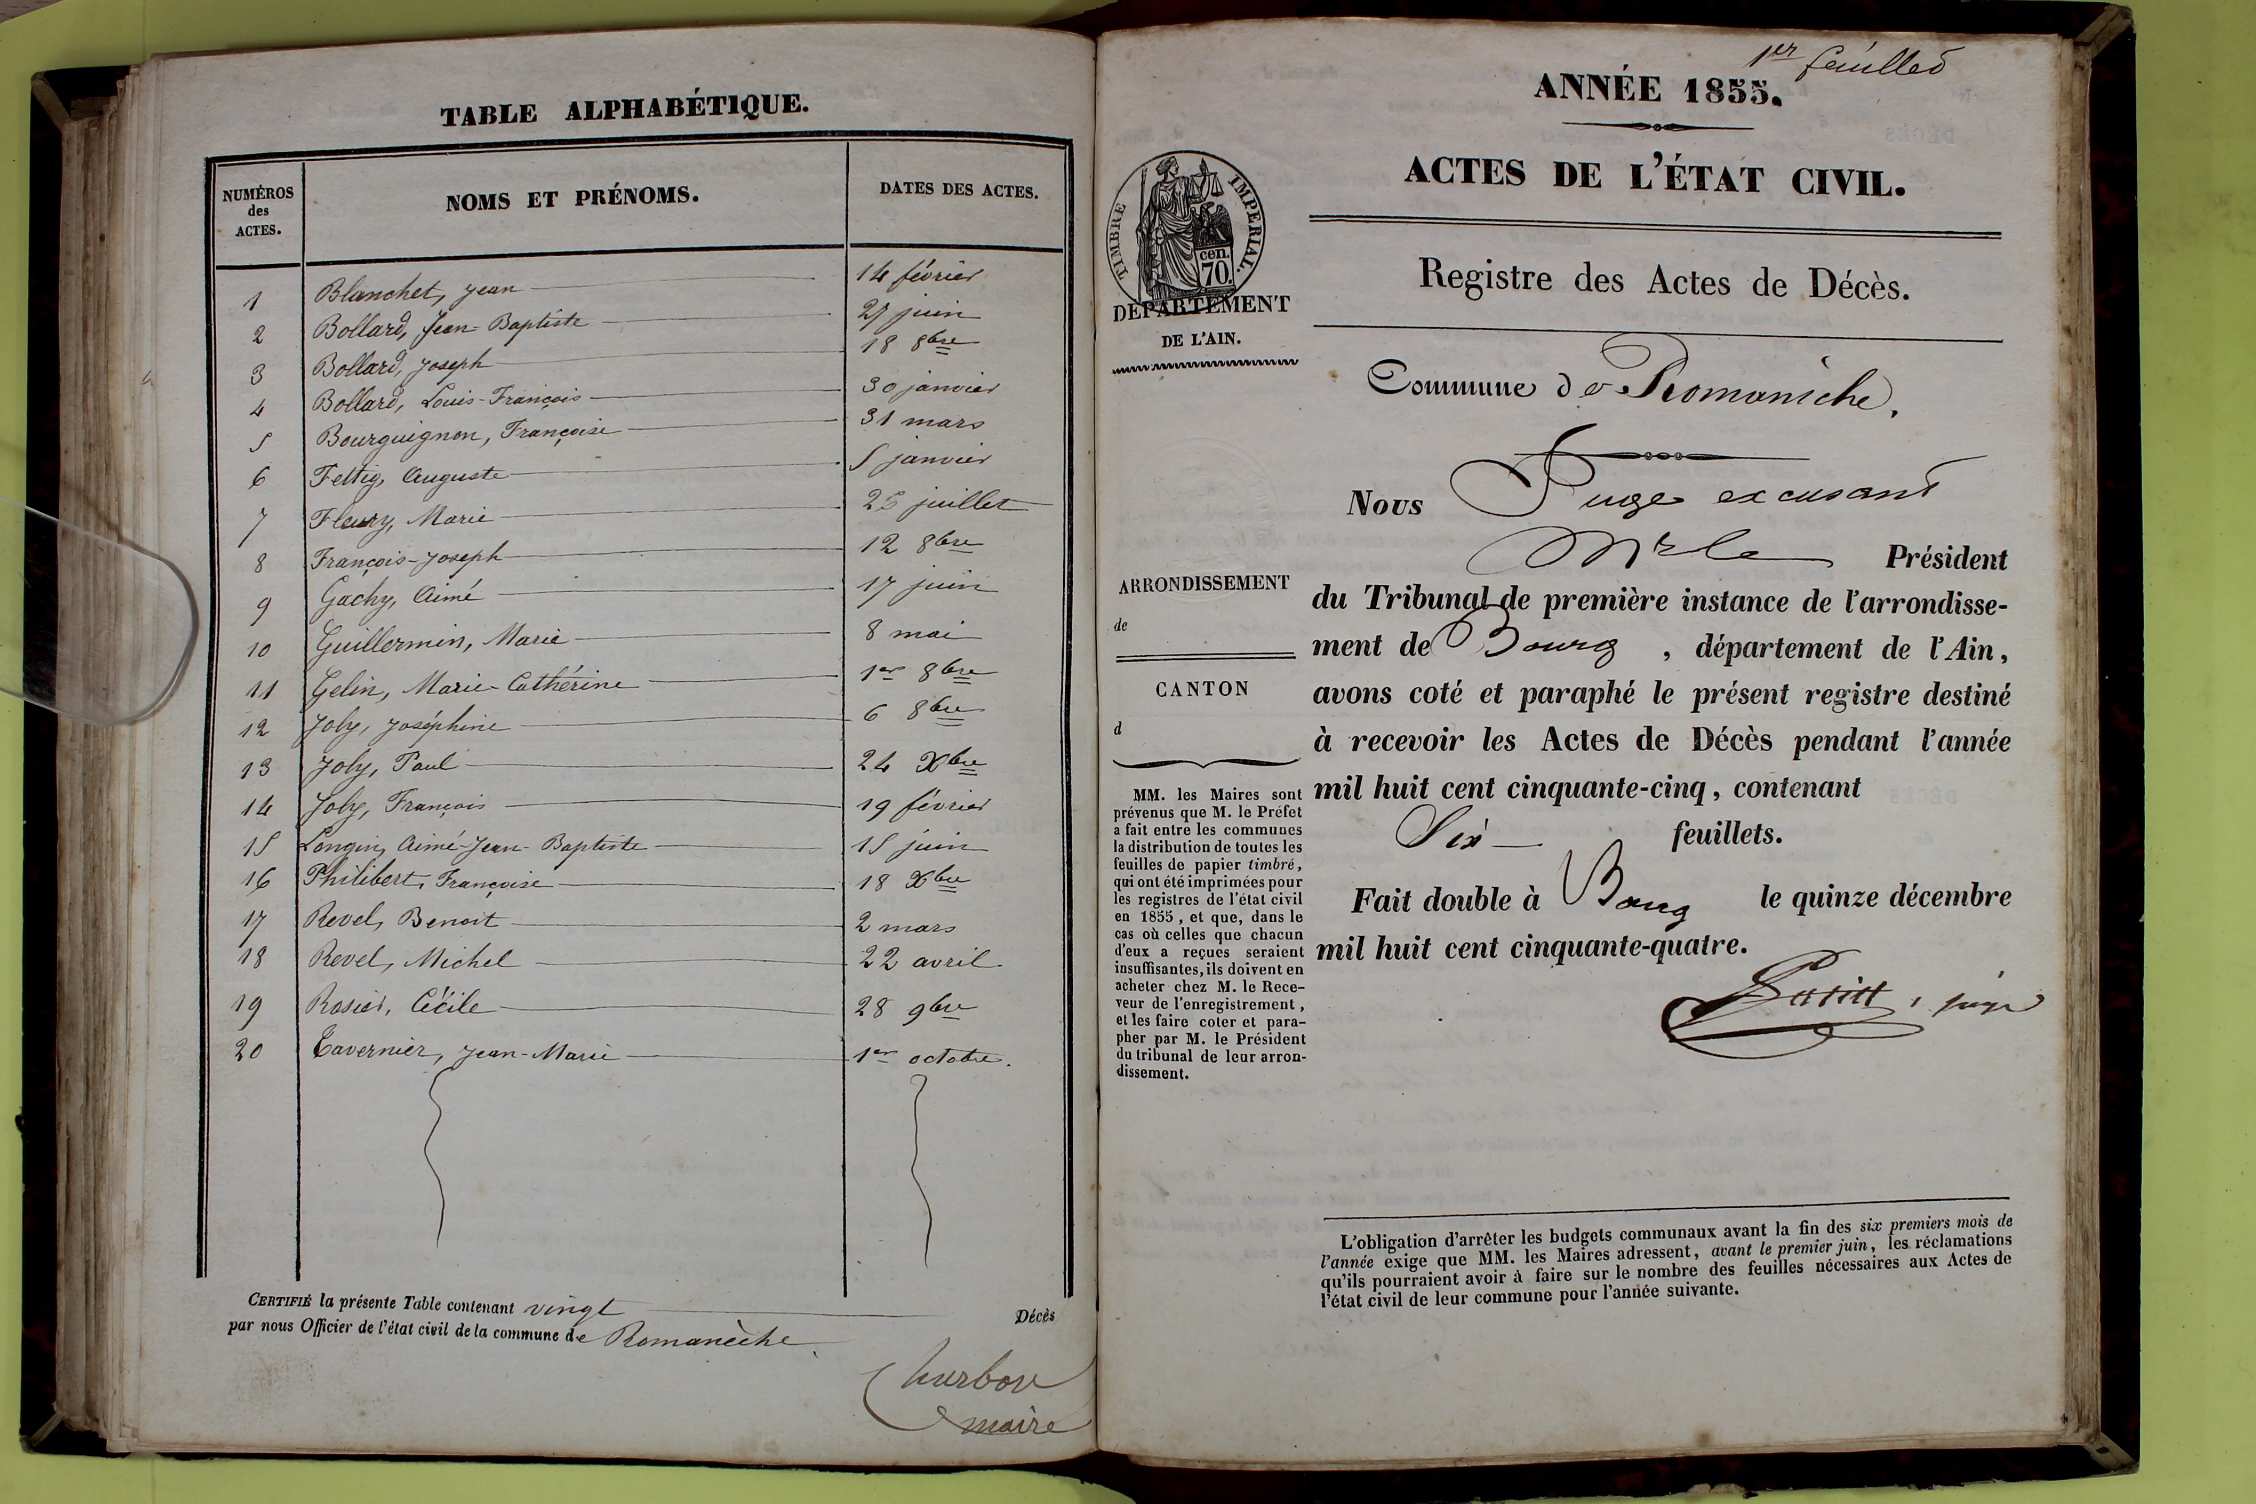 TABLE ALPHABÉTIQUE.
NUMÉROS des ACTES. NOMS ET PRÉNOMS. DATES DES ACTES.
1 Blanchet, Jean 14 février
2 Bollard, Jean-Baptiste 27 juin
3 Bollard, Joseph 18 8bre
4 Bollard, Louis-François 30 janvier
5 Bourguignon, Françoise 31 mars
6 Fettig, Auguste 5 janvier
7 Fleury, Marie juillet
8 François-Joseph 12 8bre
9 Gachy, Aimé 17 juin
10 Guillermin, Marie 8 mai
11 Gelin, Marie-Cathérine 1er 8bre
12 Joly, Joséphine 6 8bre
13 Joly, Paul 24 Xbre
14 Joly, François 19 février
15 Longin, Aimé-Jean-Baptiste 15 juin
16 Philibert, Françoise 18 Xbre
17 Revel, Benoit 2 mars
18 Revel, Michel 22 avril
19 Rosier, Cécile 28 9bre
20 Tavernier, Jean-Marie 1er octobre.
CERTIFIÉ la présente Table contenant vingt Décès
par nous Officier de l'état civil de la commune de Romanèche.
maire
1er feuillet
ANNÉE 1855.
ACTES DE L'ÉTAT CIVIL.
TIMBRE IMPERIAL.
cen.
70.
DÉPARTEMENT
DE L'AIN.
Registre des Actes de Décès.
Commune de Romanèche.
Nous Juge excusant
Mr le Président
du Tribunal de première instance de l'arrondisse-
ment de Bourg, département de l'Ain,
avons coté et paraphé le présent registre destiné
à recevoir les Actes de Décès pendant l'année
mil huit cent cinquante-cinq, contenant
Six feuillets.
Fait double à Bourg le quinze décembre
mil huit cent cinquante-quatre.
, juge
ARRONDISSEMENT
de
CANTON
d
MM. les Maires sont
prévenus que M. le Préfet
a fait entre les communes
la distribution de toutes les
feuilles de papier timbré,
qui ont été imprimées pour
les registres de l'état civil
en 1855, et que, dans le
cas où celles que chacun
d'eux a reçues seraient
insuffisantes, ils doivent en
acheter chez M. le Rece-
veur de l'enregistrement,
et les faire coter et para-
pher par M. le Président
du tribunal de leur arron-
dissement.
L'obligation d'arrêter les budgets communaux avant la fin des six premiers mois de
l'année exige que MM. les Maires adressent, avant le premier juin, les réclamations
qu'ils pourraient avoir à faire sur le nombre des feuilles nécessaires aux Actes de
l'état civil de leur commune pour l'année suivante.